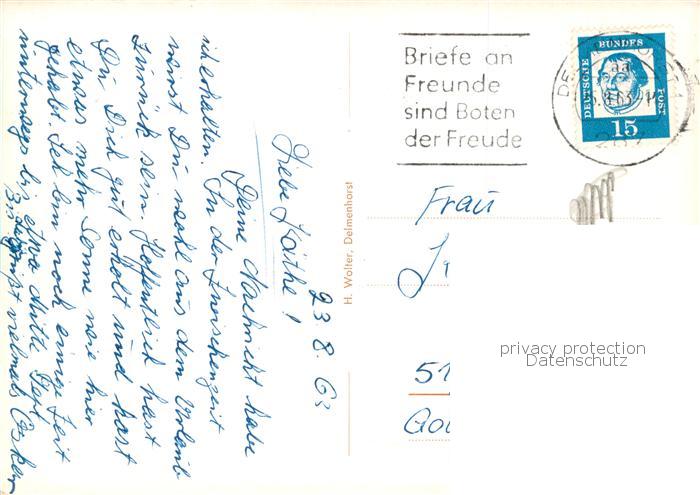 23.8.63
Liebe Käthe!
Deine Nachricht habe
ich erhalten. In der Zwischenzeit
wirst Du wohl aus dem Urlaub
zurück sein. Hoffentlich hast
Du Dich gut erholt und hast
etwas mehr Sonne wie hier
gehabt. Ich bin noch einige Zeit
unterwegs bis etwa Mitte Sept.
grüßt vielmals
H. Wolter, Delmenhorst
Briefe an
Freunde
sind Boten
der Freude
DEUTSCHE BUNDES POST
15
Frau
51
privacy protection
Datenschutz